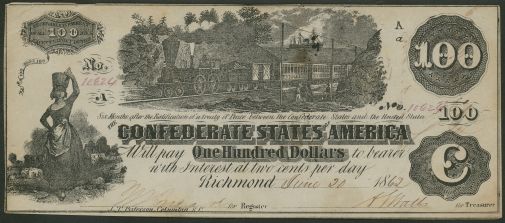 100
No.
10624
A
a
100
No. 10624
A
Six Months after the Ratification of a treaty of Peace between the Confederate States and the United States
100
THE CONFEDERATE STATES OF AMERICA
Will pay One Hundred Dollars to bearer
with Interest at two cents per day
C
Richmond June 20 1862
for Register
for Treasurer
J. T. Paterson, Columbia, S.C.